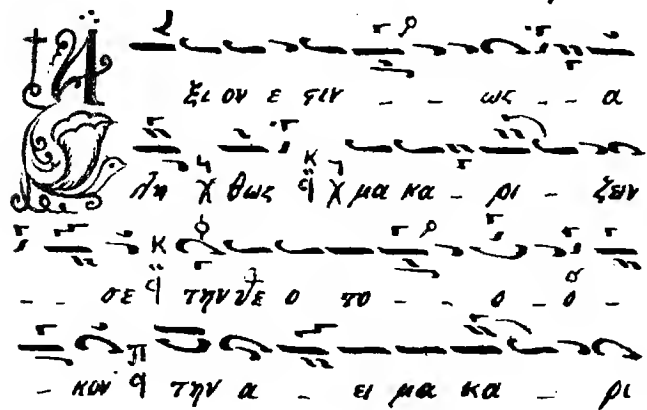 Α ξι ον ε στιν - - ως - - α
λη θως μα κα - ρι - ζειν
- - σε την Θε ο το - - ο - ο -
- κον την α - ει μα κα - ρι